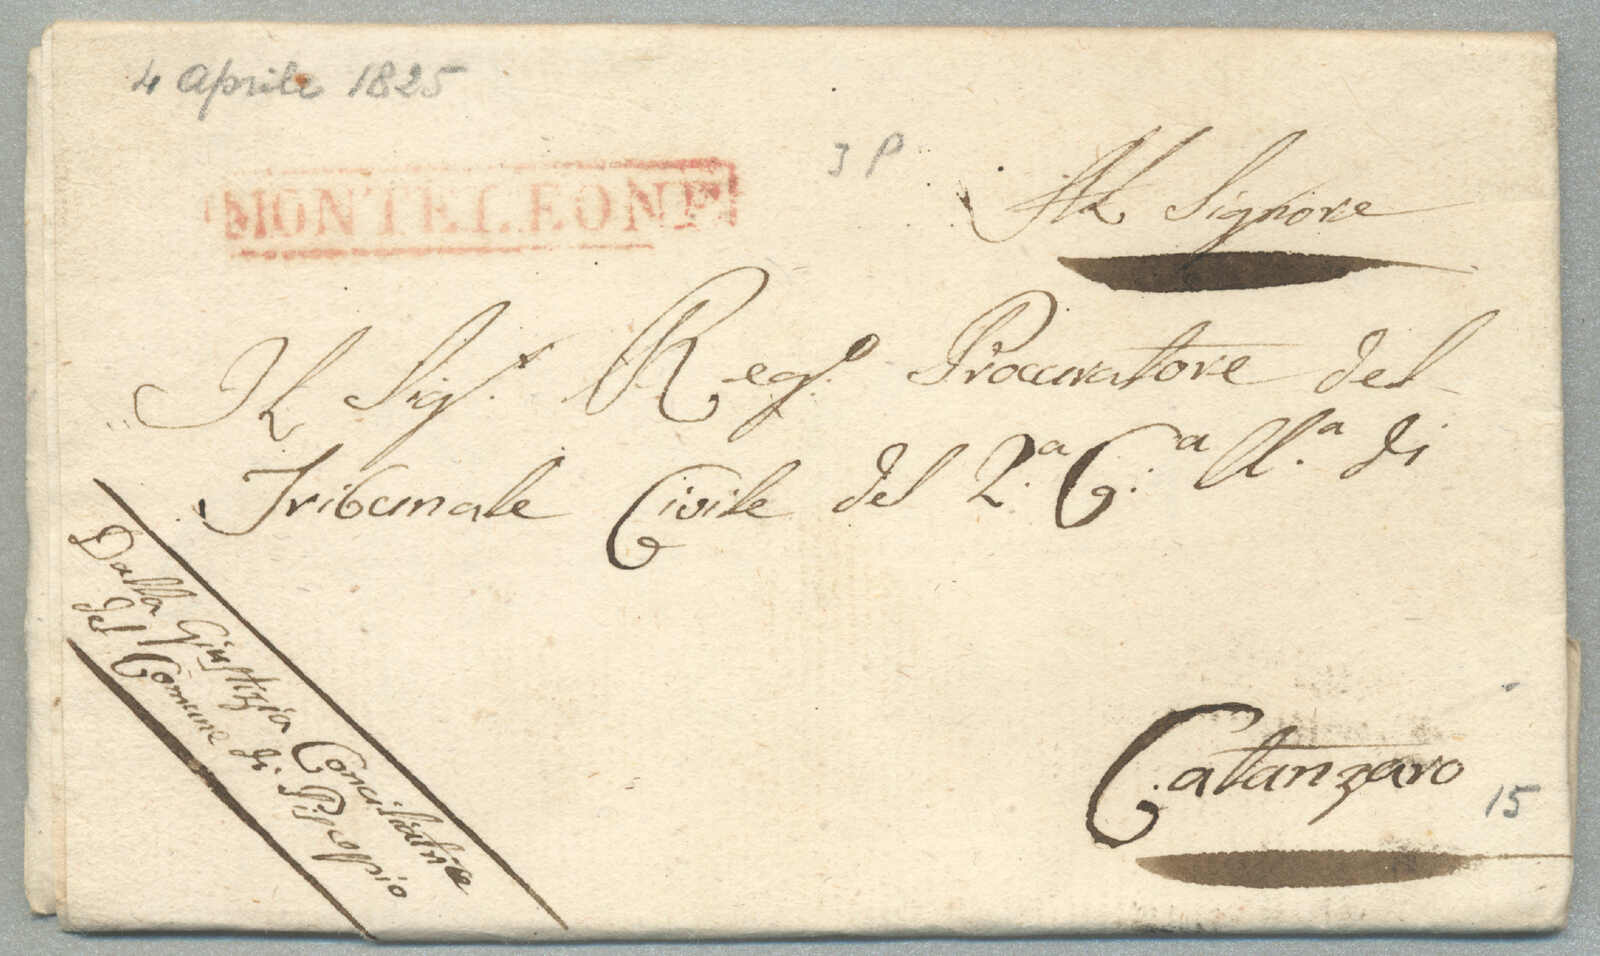 4 Aprile 1825
3 P
MONTELEONE
Al Signore
Il Sig.r Reg.o Procuratore del
Tribunale Civile del 2.a C.a U.a di
Catanzaro
15
Dalla Giustizia Conciliatrice
del Comune di